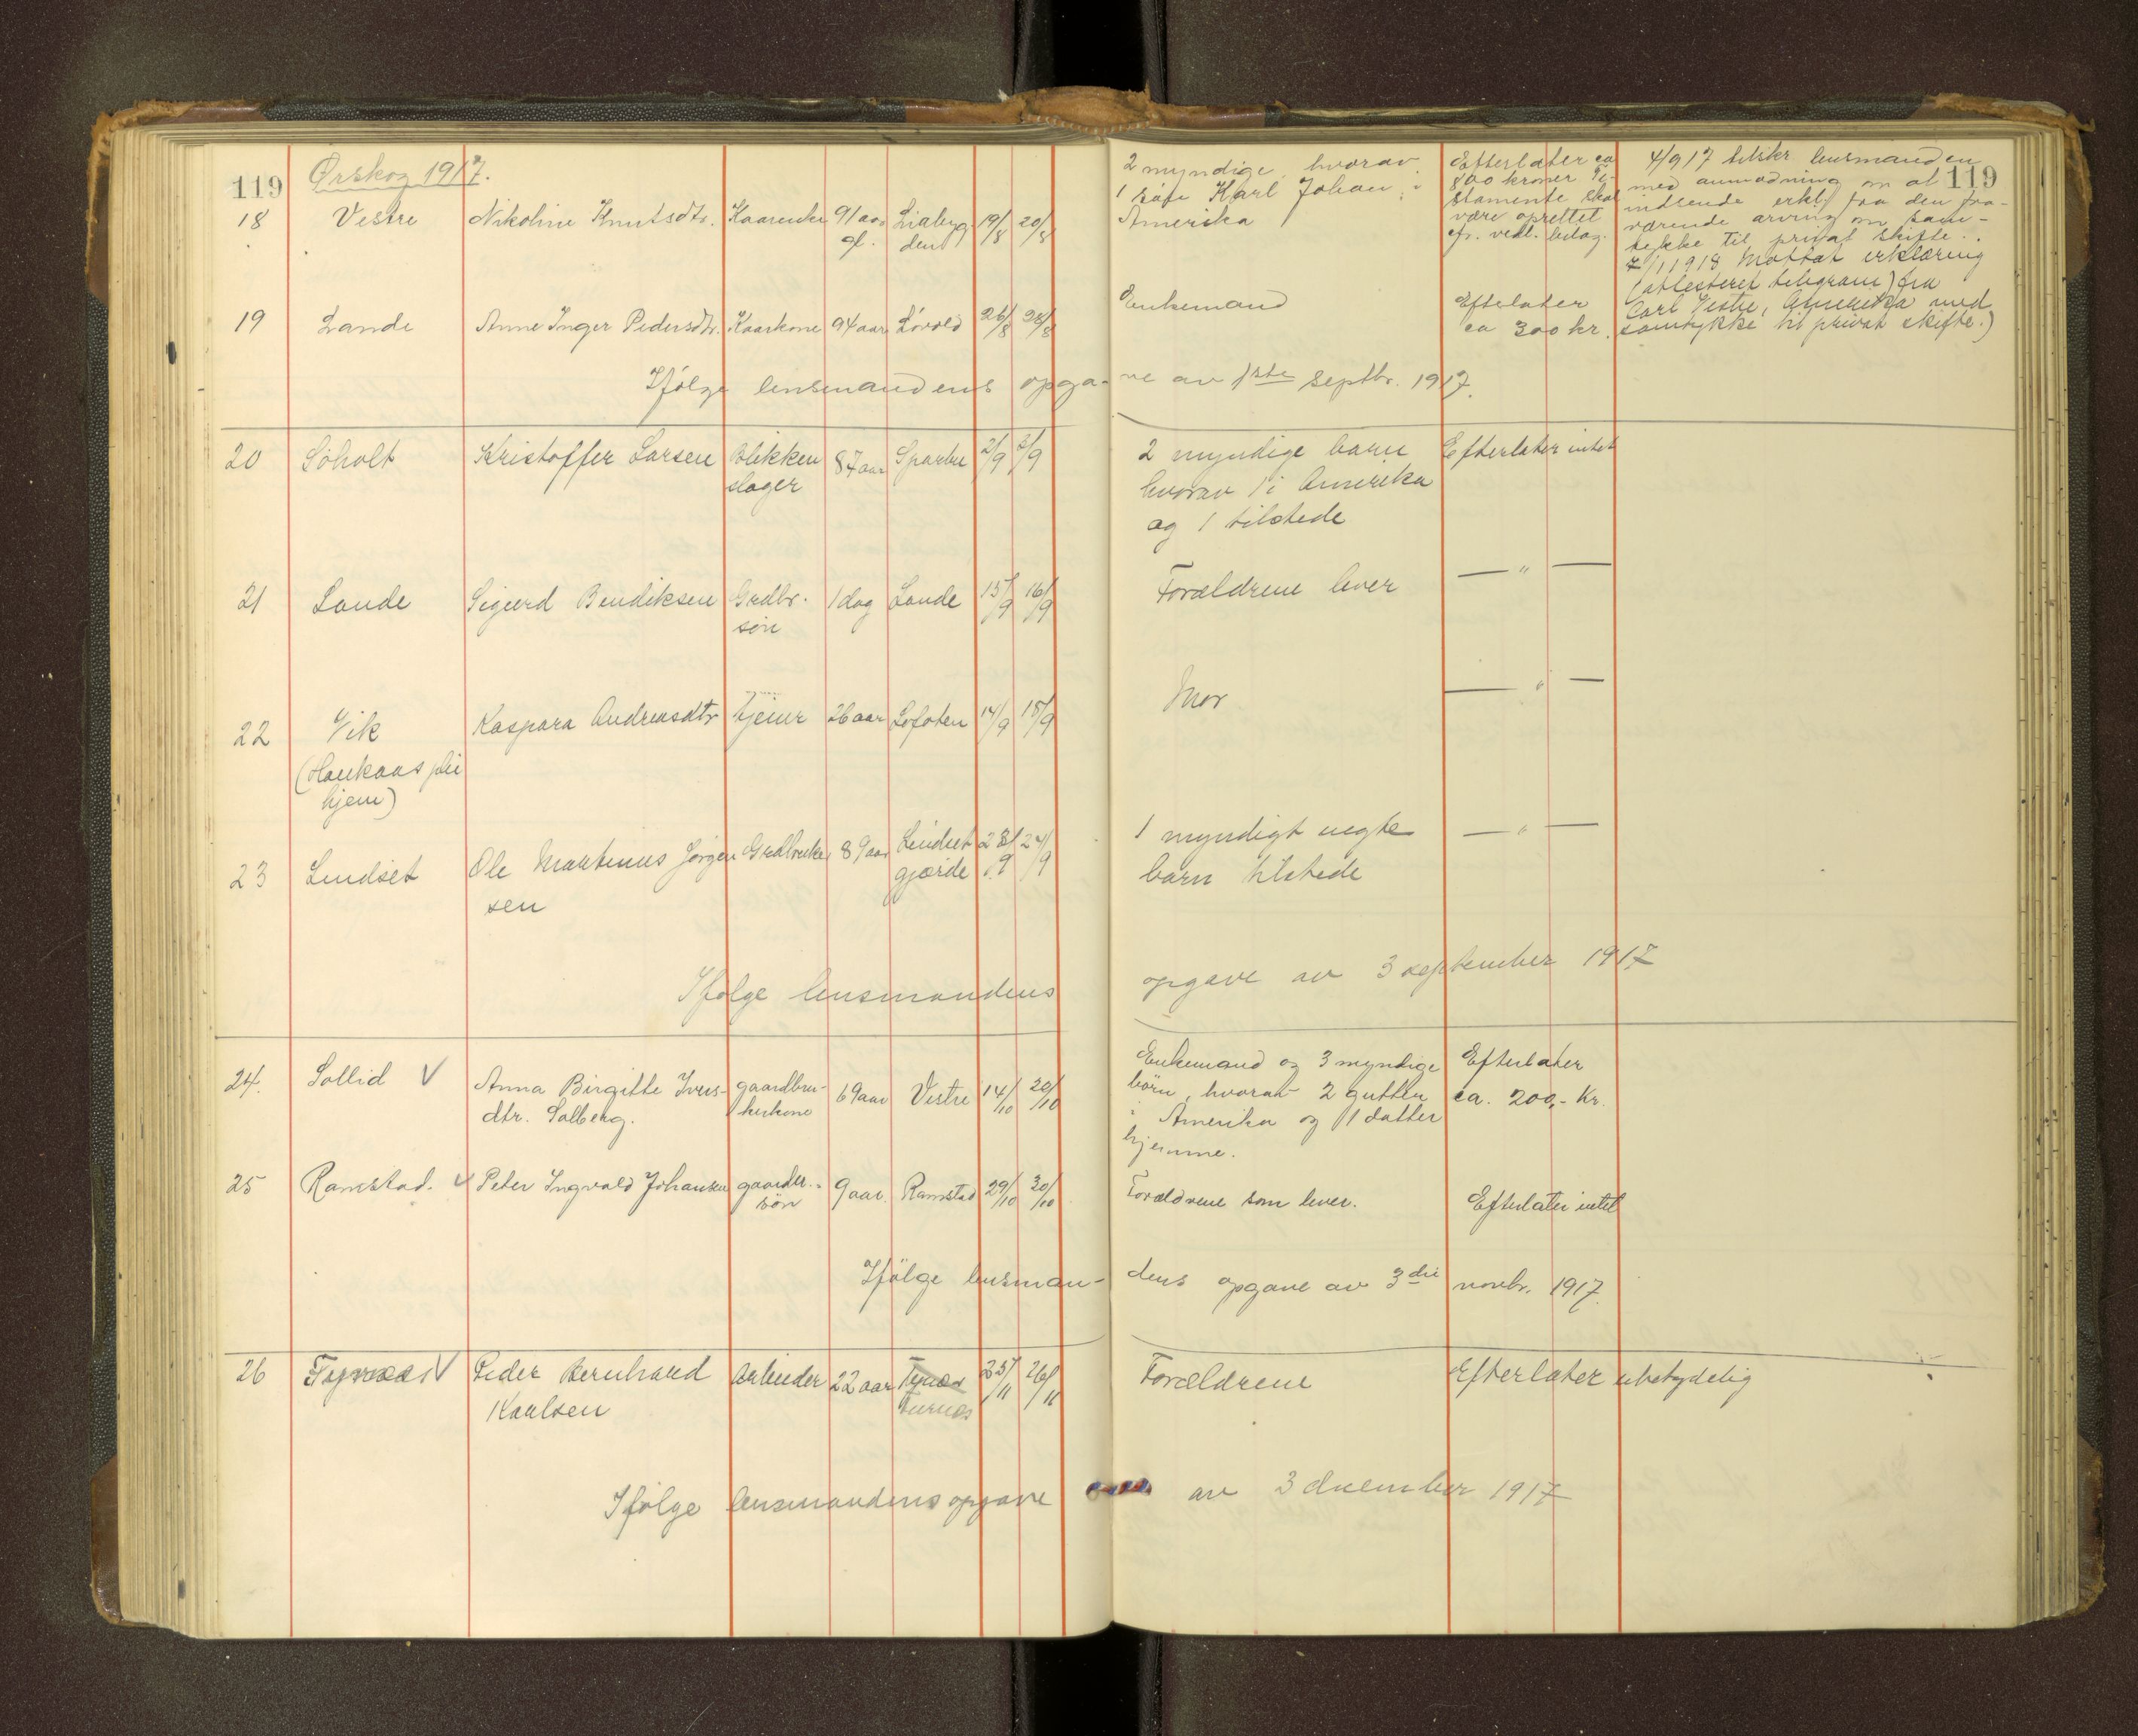 119 Ørskog 1917. 119
18 Vestre Nikoline Knutsdtr. Kaarenke 91 aar Liabyg 19/8 20/8
gl. den
2 myndige, hvorav
1 søn Karl Johan i
Amerika
Efterlater ca
800 kroner Te-
stamente skal
være oprettet
cfr. vedl. bilag.
4/9 17 tilskr lensmanden
med anmodning om at
indsende erkl. fra den fra-
værende arving om sam-
tykke til privat skifte.
7/1 1918 Mottat erklæring
(attesteret telegram) fra
Carl Vestre, Amerika med
samtykke til privat skifte.)
19 Lande Anne Inger Pedersdtr. Kaarkone 94 aar Løvold 26/8 28/8
Enkemand
Efterlater
ca 300 kr.
Ifølge lensmandens opga- ve av 1ste septbr. 1917.
20 Søholt Kristoffer Larsen Blikken 87 aar Sparbu 2/9 3/9
slager
2 myndige barn Efterlater intet
hvorav 1 i Amerika
og 1 tilstede
21 Lande Sigurd Bendiksen Grdbr. 1 dag Lande 15/9 16/9
søn
Forældrene lever — " —
22 Vik Kaspara Andreasdtr tjener 26 aar Lofoten 14/9 18/9
(Haukaas plei
hjem)
Mor — " —
23 Lindset Ole Martinus Jørgen Grdbruker 89 aar Lindset 23/9 24/9
sen gjærde
1 myndigt uegte — " —
barn tilstede
Ifølge lensmandens opgave av 3 september 1917
24. Sollid V Anna Birgitte Ivers- gaardbru- 69 aar Vestre 14/10 20/10
dtr. Solberg. kerkone
Enkemand og 3 myndige Efterlater
börn, hvorav 2 gutter ca. 200,- Kr.
i Amerika og 1 datter
hjemme.
25 Ramstad. V Peter Ingvald Johansen gaardbr.- 9 aar. Ramstad 29/10 30/10
sön
Forældrene som lever. Efterlater intet
Ifölge lensman- dens opgave av 3die novbr. 1917.
26 V Peder Bernhard Arbeider 22 aar 25/11 26/11
Karlsen
Forældrene Efterlater ubetydelig
Ifølge lensmandens opgave av 3 december 1917